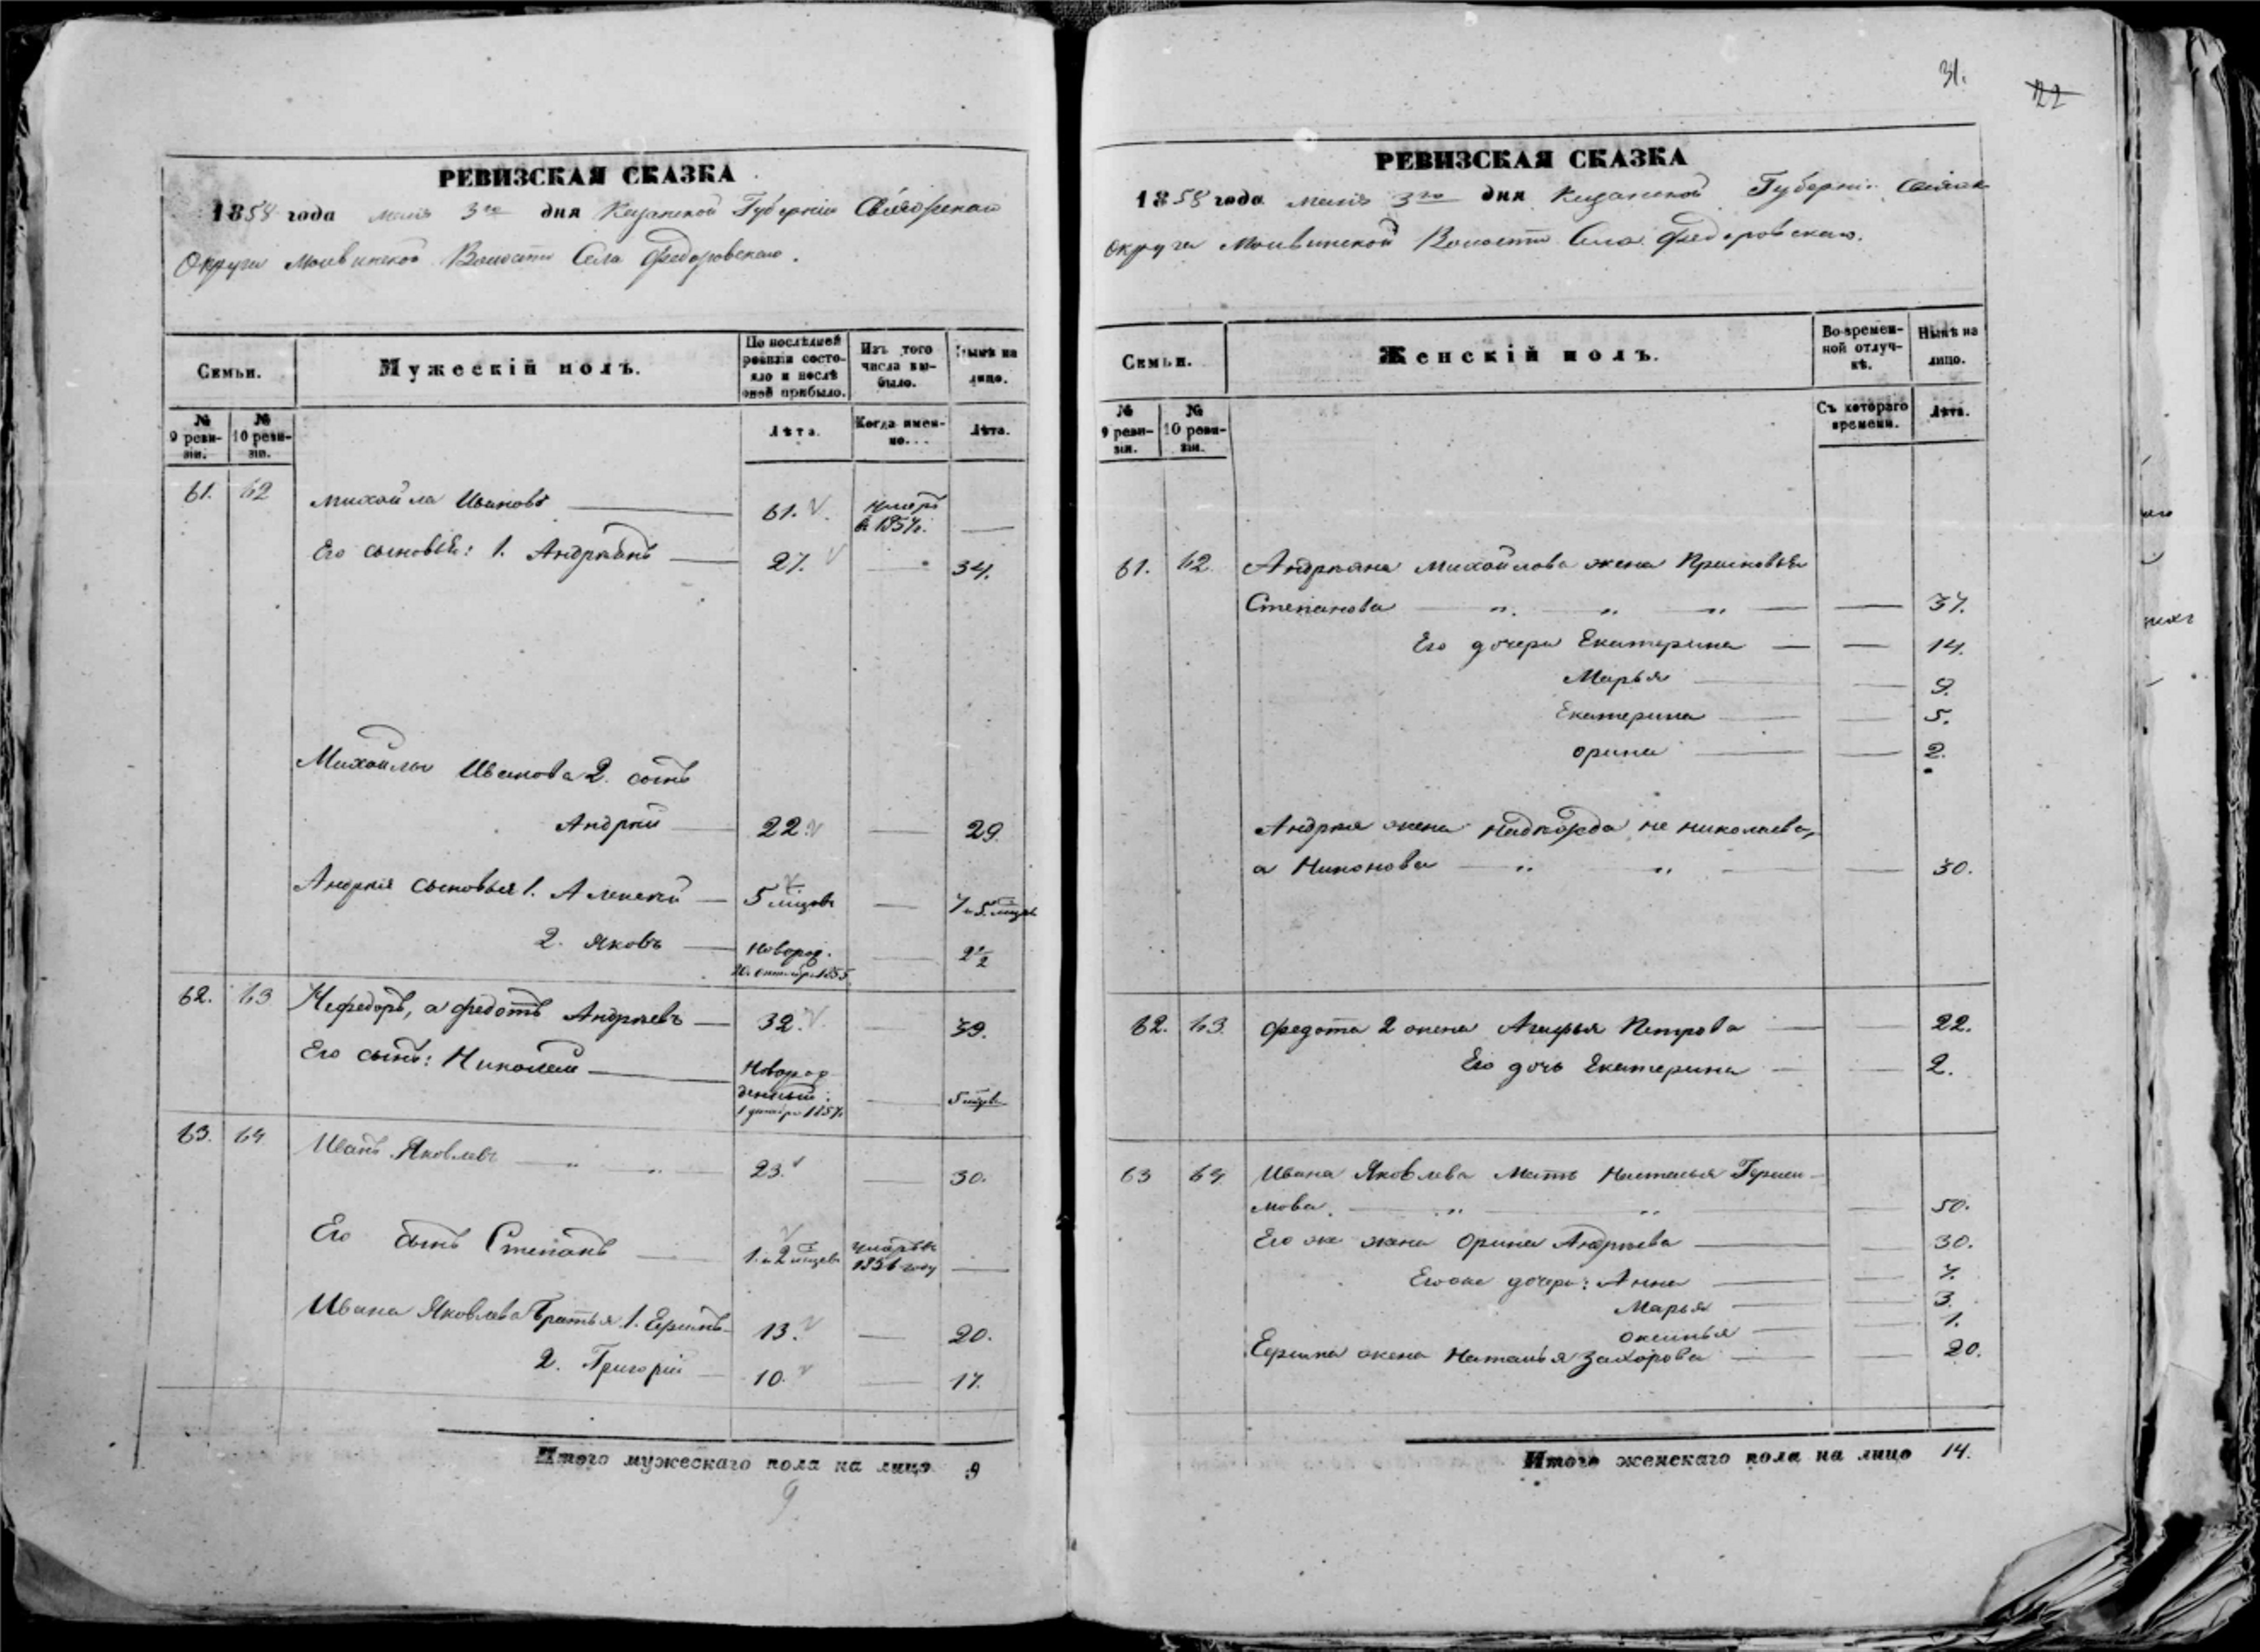 РЕВИЗСКАЯ СКАЗКА
1858 года маія 3го дня Казанской Губерніи Свіяжскаго
Округа Молвинской Волости Села Федоровскаго.
Семьи.
Мужескій полъ.
По послѣдней ревизіи состояло и послѣ оной прибыло.
Изъ того числа выбыло.
Нынѣ на лицо.
№ 9 ревизіи.
№ 10 ревизіи.
Лѣта.
Когда именно.
Лѣта.
61. 62 Михайла Ивановъ 61. умеръ въ 1857г.
Его сыновья: 1. Андріянъ 27. 34.
Михайлы Иванова 2. сынъ
Андрей 22. 29.
Андрея сыновья 1. Алексѣй 5 мѣсяцовъ 7 и 5 мѣсяц.
2. Яковъ Новорож. 20. октября 1855 2 1/2
62. 63 Нефедоръ, а Федотъ Андреевъ 32. 39.
Его сынъ: Николай Новорожденный. 1 декабря 1857г. 5 мѣсяц.
63. 64 Иванъ Яковлевъ " " 23. 30.
Его сынъ Степанъ 1. и 2 мѣсяцев умеръ въ 1856 году
Ивана Яковлева братья 1. Ефимъ 13. 20.
2. Григорій 10. 17.
Итого мужескаго пола на лицо 9
9.
31.
22
РЕВИЗСКАЯ СКАЗКА
1858 года маія 3го дня Казанской Губерніи Свіяж
Округа Молвинской Волости Села Федоровскаго.
Семьи.
Женскій полъ.
Во временной отлучкѣ.
Нынѣ на лицо.
№ 9 ревизіи.
№ 10 ревизіи.
Съ котораго времени.
Лѣта.
61. 62. Андріяна Михайлова жена Прасковья
Степанова " " " 37.
Его дочери Екатерина 14.
Марья 9.
Екатерина 5.
Орина 2.
Андрея жена Надежда не Николаева,
а Никонова " " 30.
62. 63. Федота 2 жена Агафья Петрова 22.
Его дочь Екатерина 2.
63 64 Ивана Яковлева мать Наталья Гераси-
мова. " " 50.
Его же жена Орина Андреева 30.
Его же дочери: Анна 7.
Марья 3.
Оксинья 1.
Ефима жена Наталья Захарова 20.
Итого женскаго пола на лицо 14.